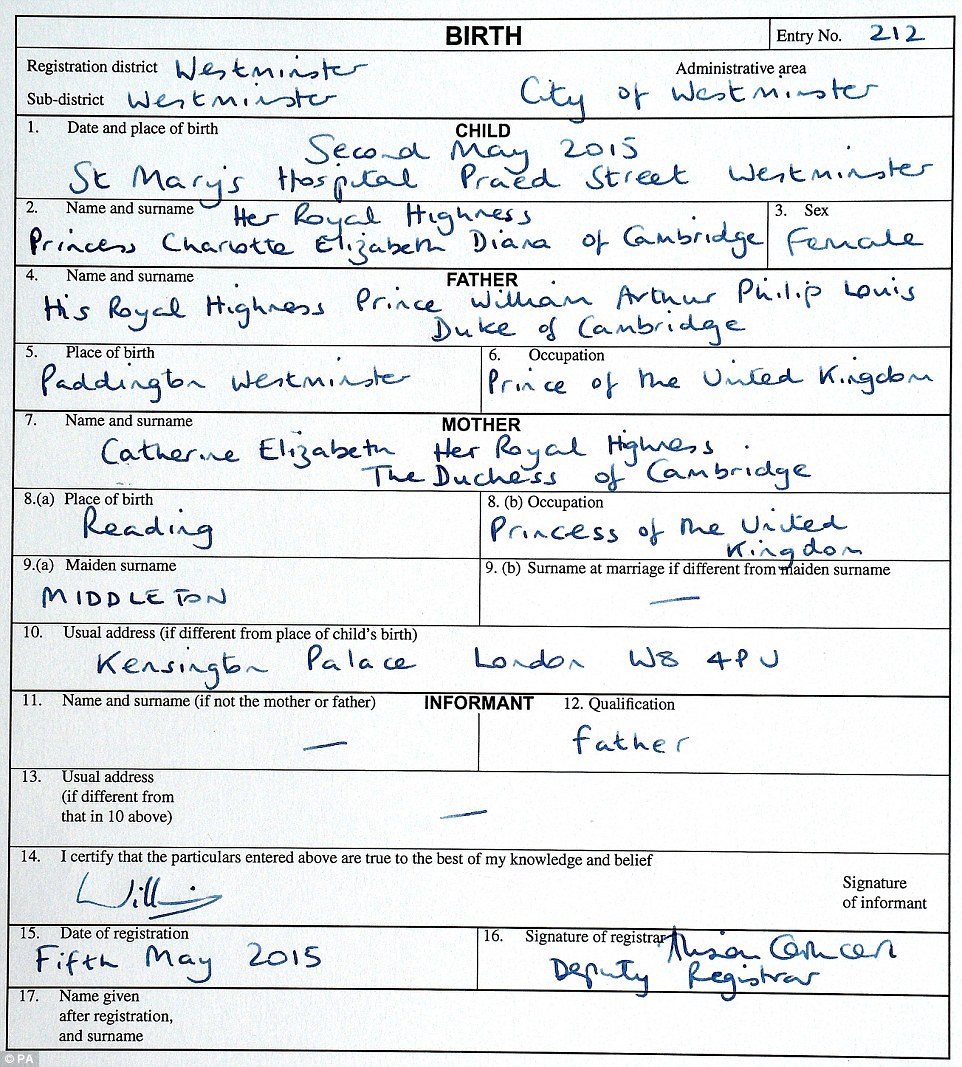 BIRTH Entry No. 212
Registration district Westminster Administrative area
Sub-district Westminster City of Westminster
1. Date and place of birth CHILD
Second May 2015
St Mary's Hospital Praed Street Westminster
2. Name and surname Her Royal Highness 3. Sex
Princess Charlotte Elizabeth Diana of Cambridge Female
4. Name and surname FATHER
His Royal Highness Prince William Arthur Philip Louis
Duke of Cambridge
5. Place of birth 6. Occupation
Paddington Westminster Prince of the United Kingdom
7. Name and surname MOTHER
Catherine Elizabeth Her Royal Highness
The Duchess of Cambridge
8.(a) Place of birth 8. (b) Occupation
Reading Princess of the United
Kingdom
9.(a) Maiden surname 9. (b) Surname at marriage if different from maiden surname
MIDDLETON —
10. Usual address (if different from place of child's birth)
Kensington Palace London W8 4PU
11. Name and surname (if not the mother or father) INFORMANT 12. Qualification
— father
13. Usual address
(if different from
that in 10 above) —
14. I certify that the particulars entered above are true to the best of my knowledge and belief
Signature
of informant
15. Date of registration 16. Signature of registrar
Fifth May 2015 Deputy Registrar
17. Name given
after registration,
and surname
© PA